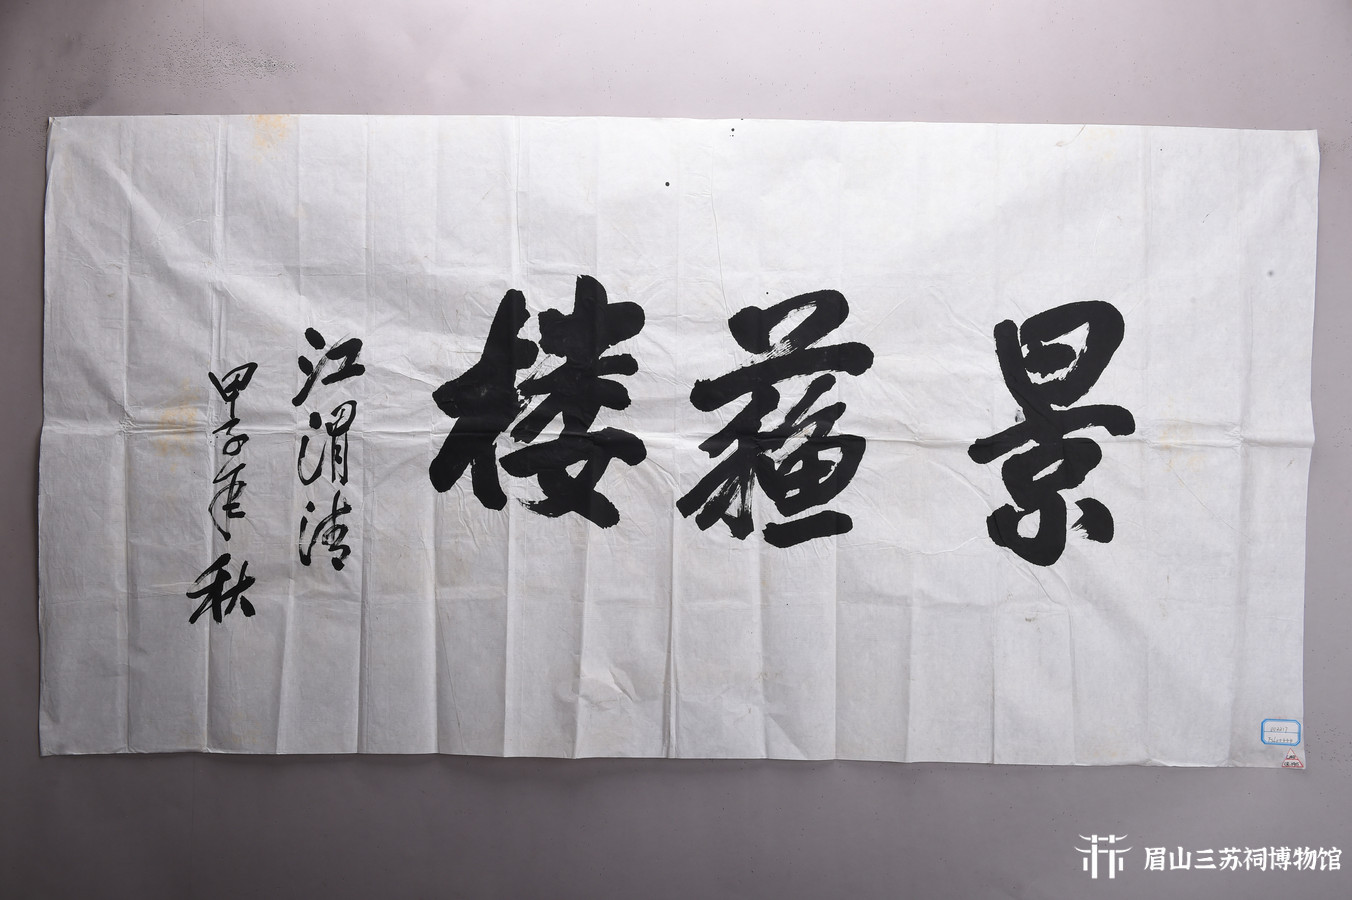 景蘇楼
江渭清
甲子年秋
眉山三苏祠博物馆